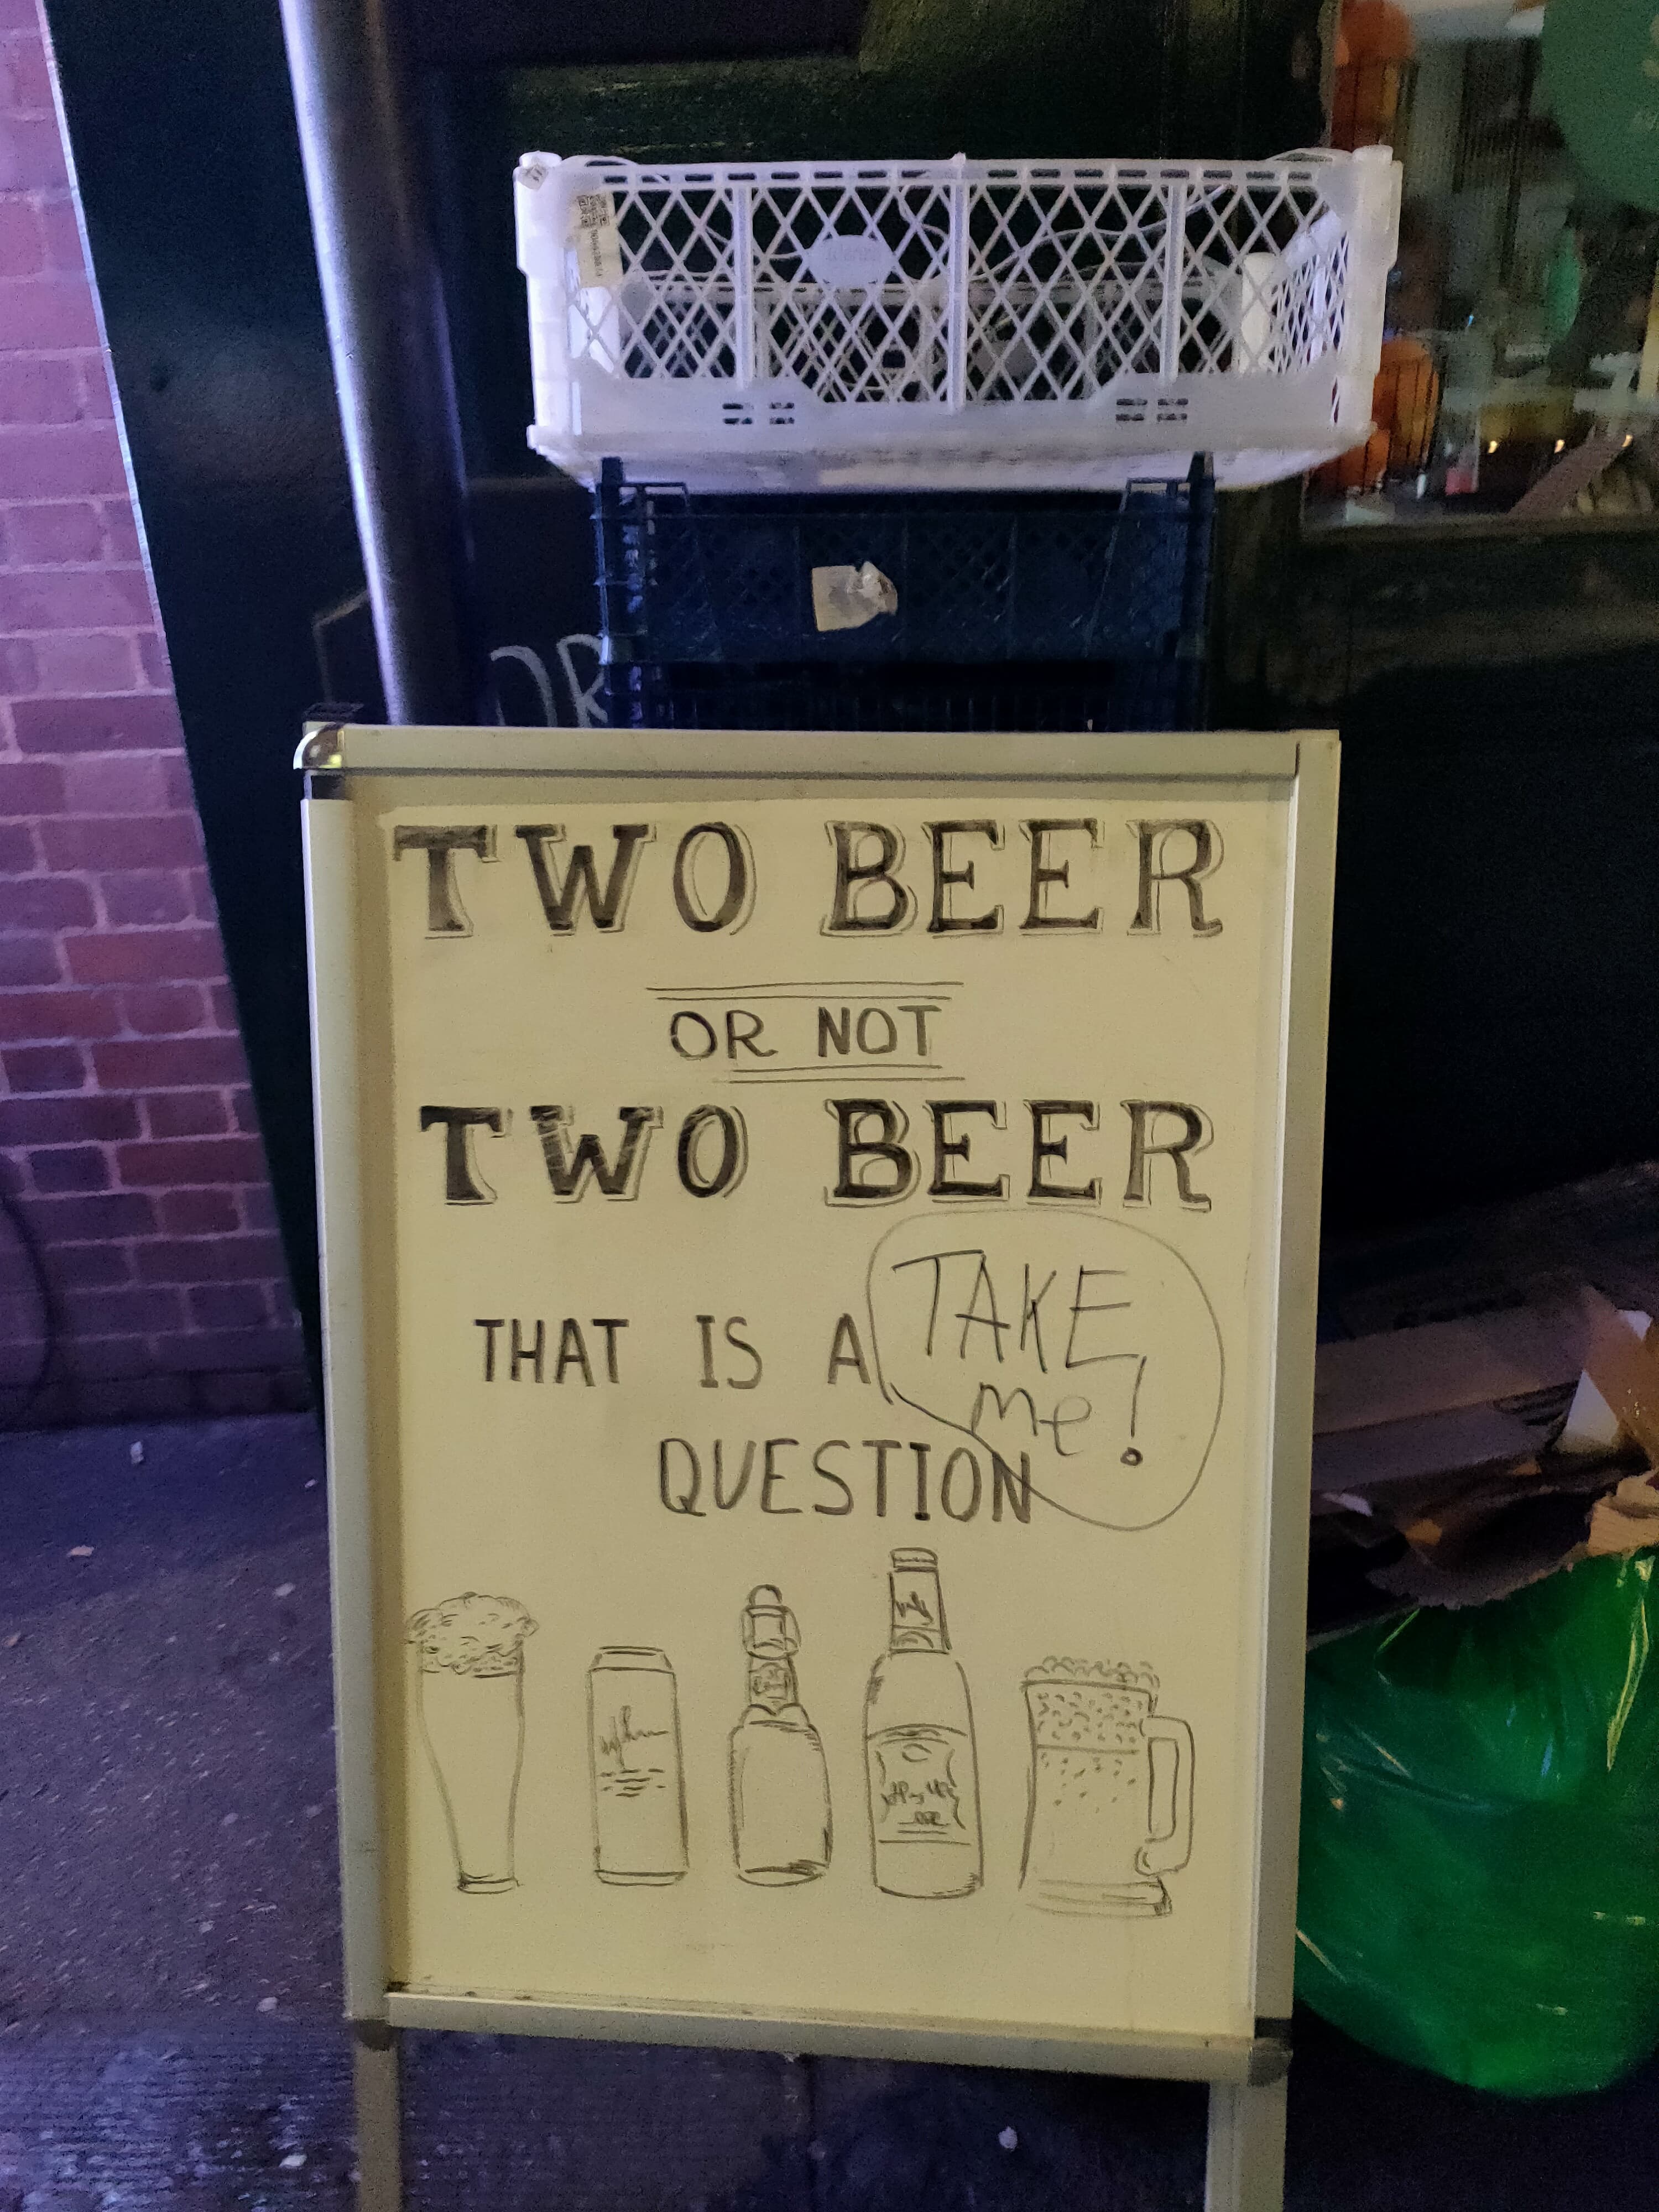 OR
TWO BEER
OR NOT
TWO BEER
THAT IS A
QUESTION
TAKE
me!